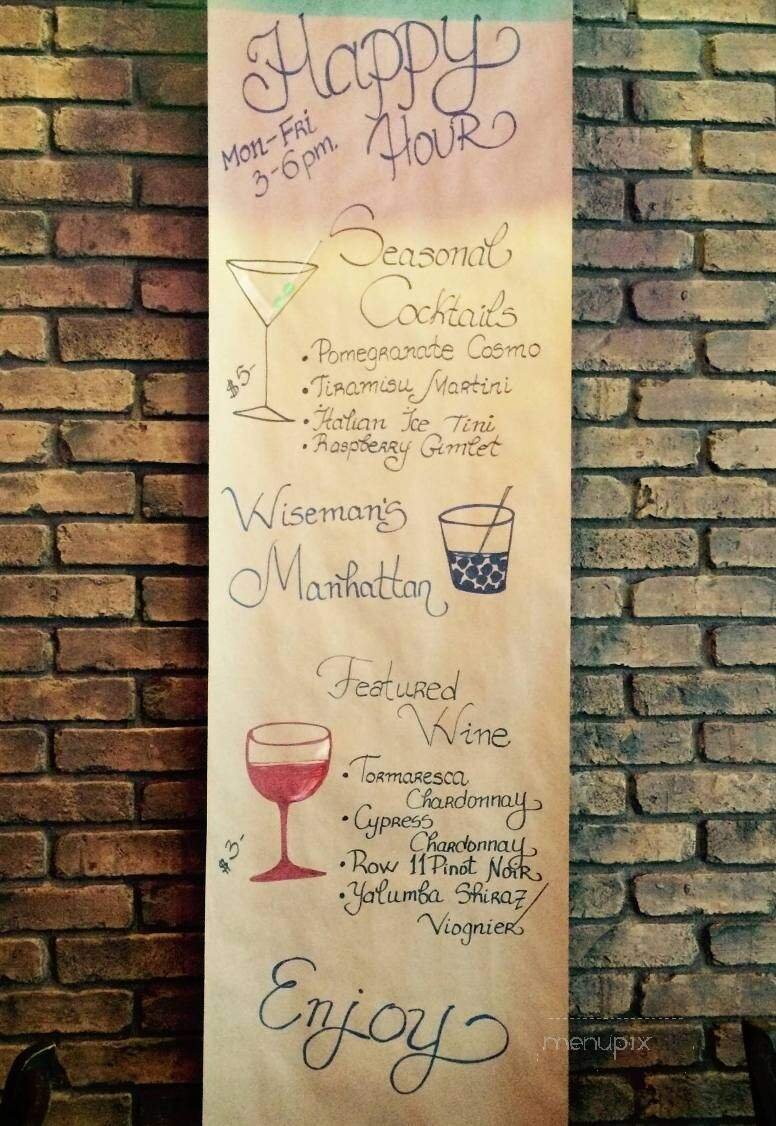 Happy
Hour
Mon-Fri
3-6pm.
Seasonal
Cocktails
$5-
• Pomegranate Cosmo
• Tiramisu Martini
• Italian Ice Tini
• Raspberry Gimlet
Wiseman's
Manhattan
Featured
Wine
$3-
• Tormaresca
Chardonnay
• Cypress
Chardonnay
• Row 11 Pinot Noir
• Yalumba Shiraz/
Viognier
Enjoy
menupix